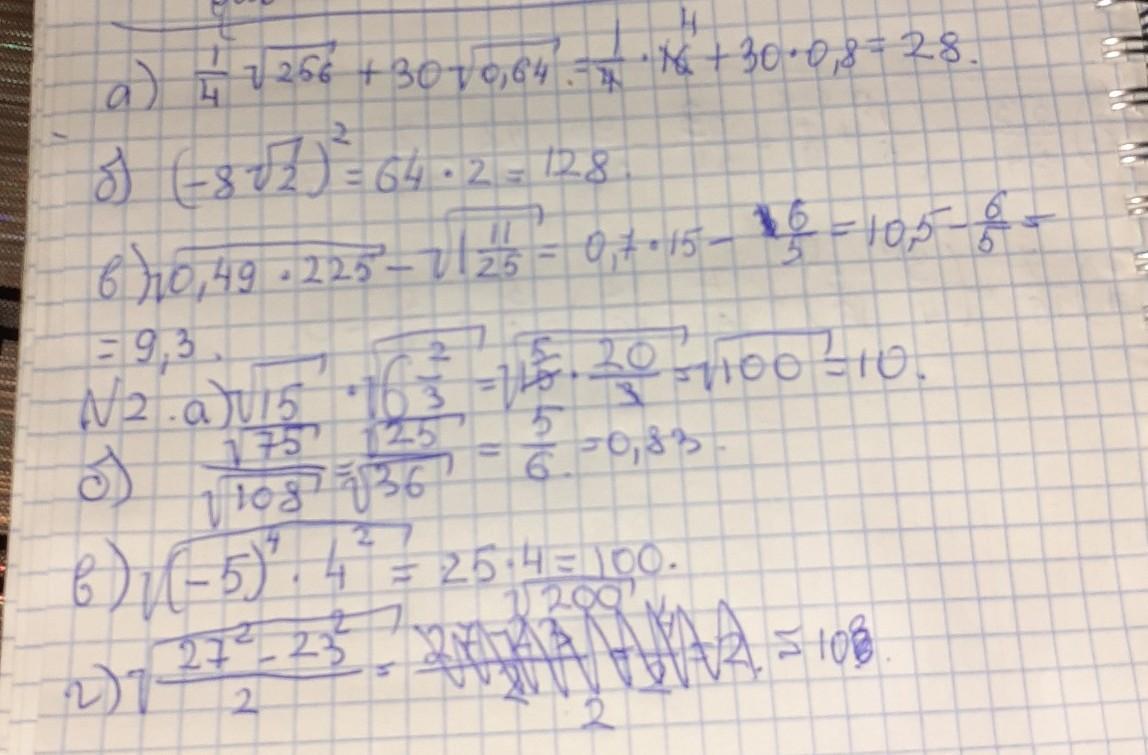 а) 1/4 √256 + 30√0,64 = 1/4 · 16 4 + 30·0,8 = 28.
б) (-8√2)² = 64 · 2 = 128.
в) √0,49 · 225 - √1 11/25 = 0,7·15 - 6/5 = 10,5 - 6/5 =
= 9,3.
N2. а) √15 · √6 2/3 = √15 5 · 20/3 = √100 = 10.
б) √75/√108 = √25/√36 = 5/6 = 0,83.
в) √(-5)⁴ · 4² = 25·4 = 100.
г) √27² - 23²/2 = √200/2 = 10